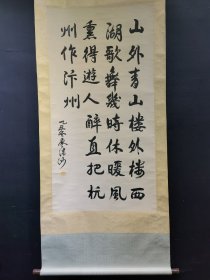 山外青山楼外楼西
湖歌舞几时休暖风
熏得遊人醉直把杭
州作汴州